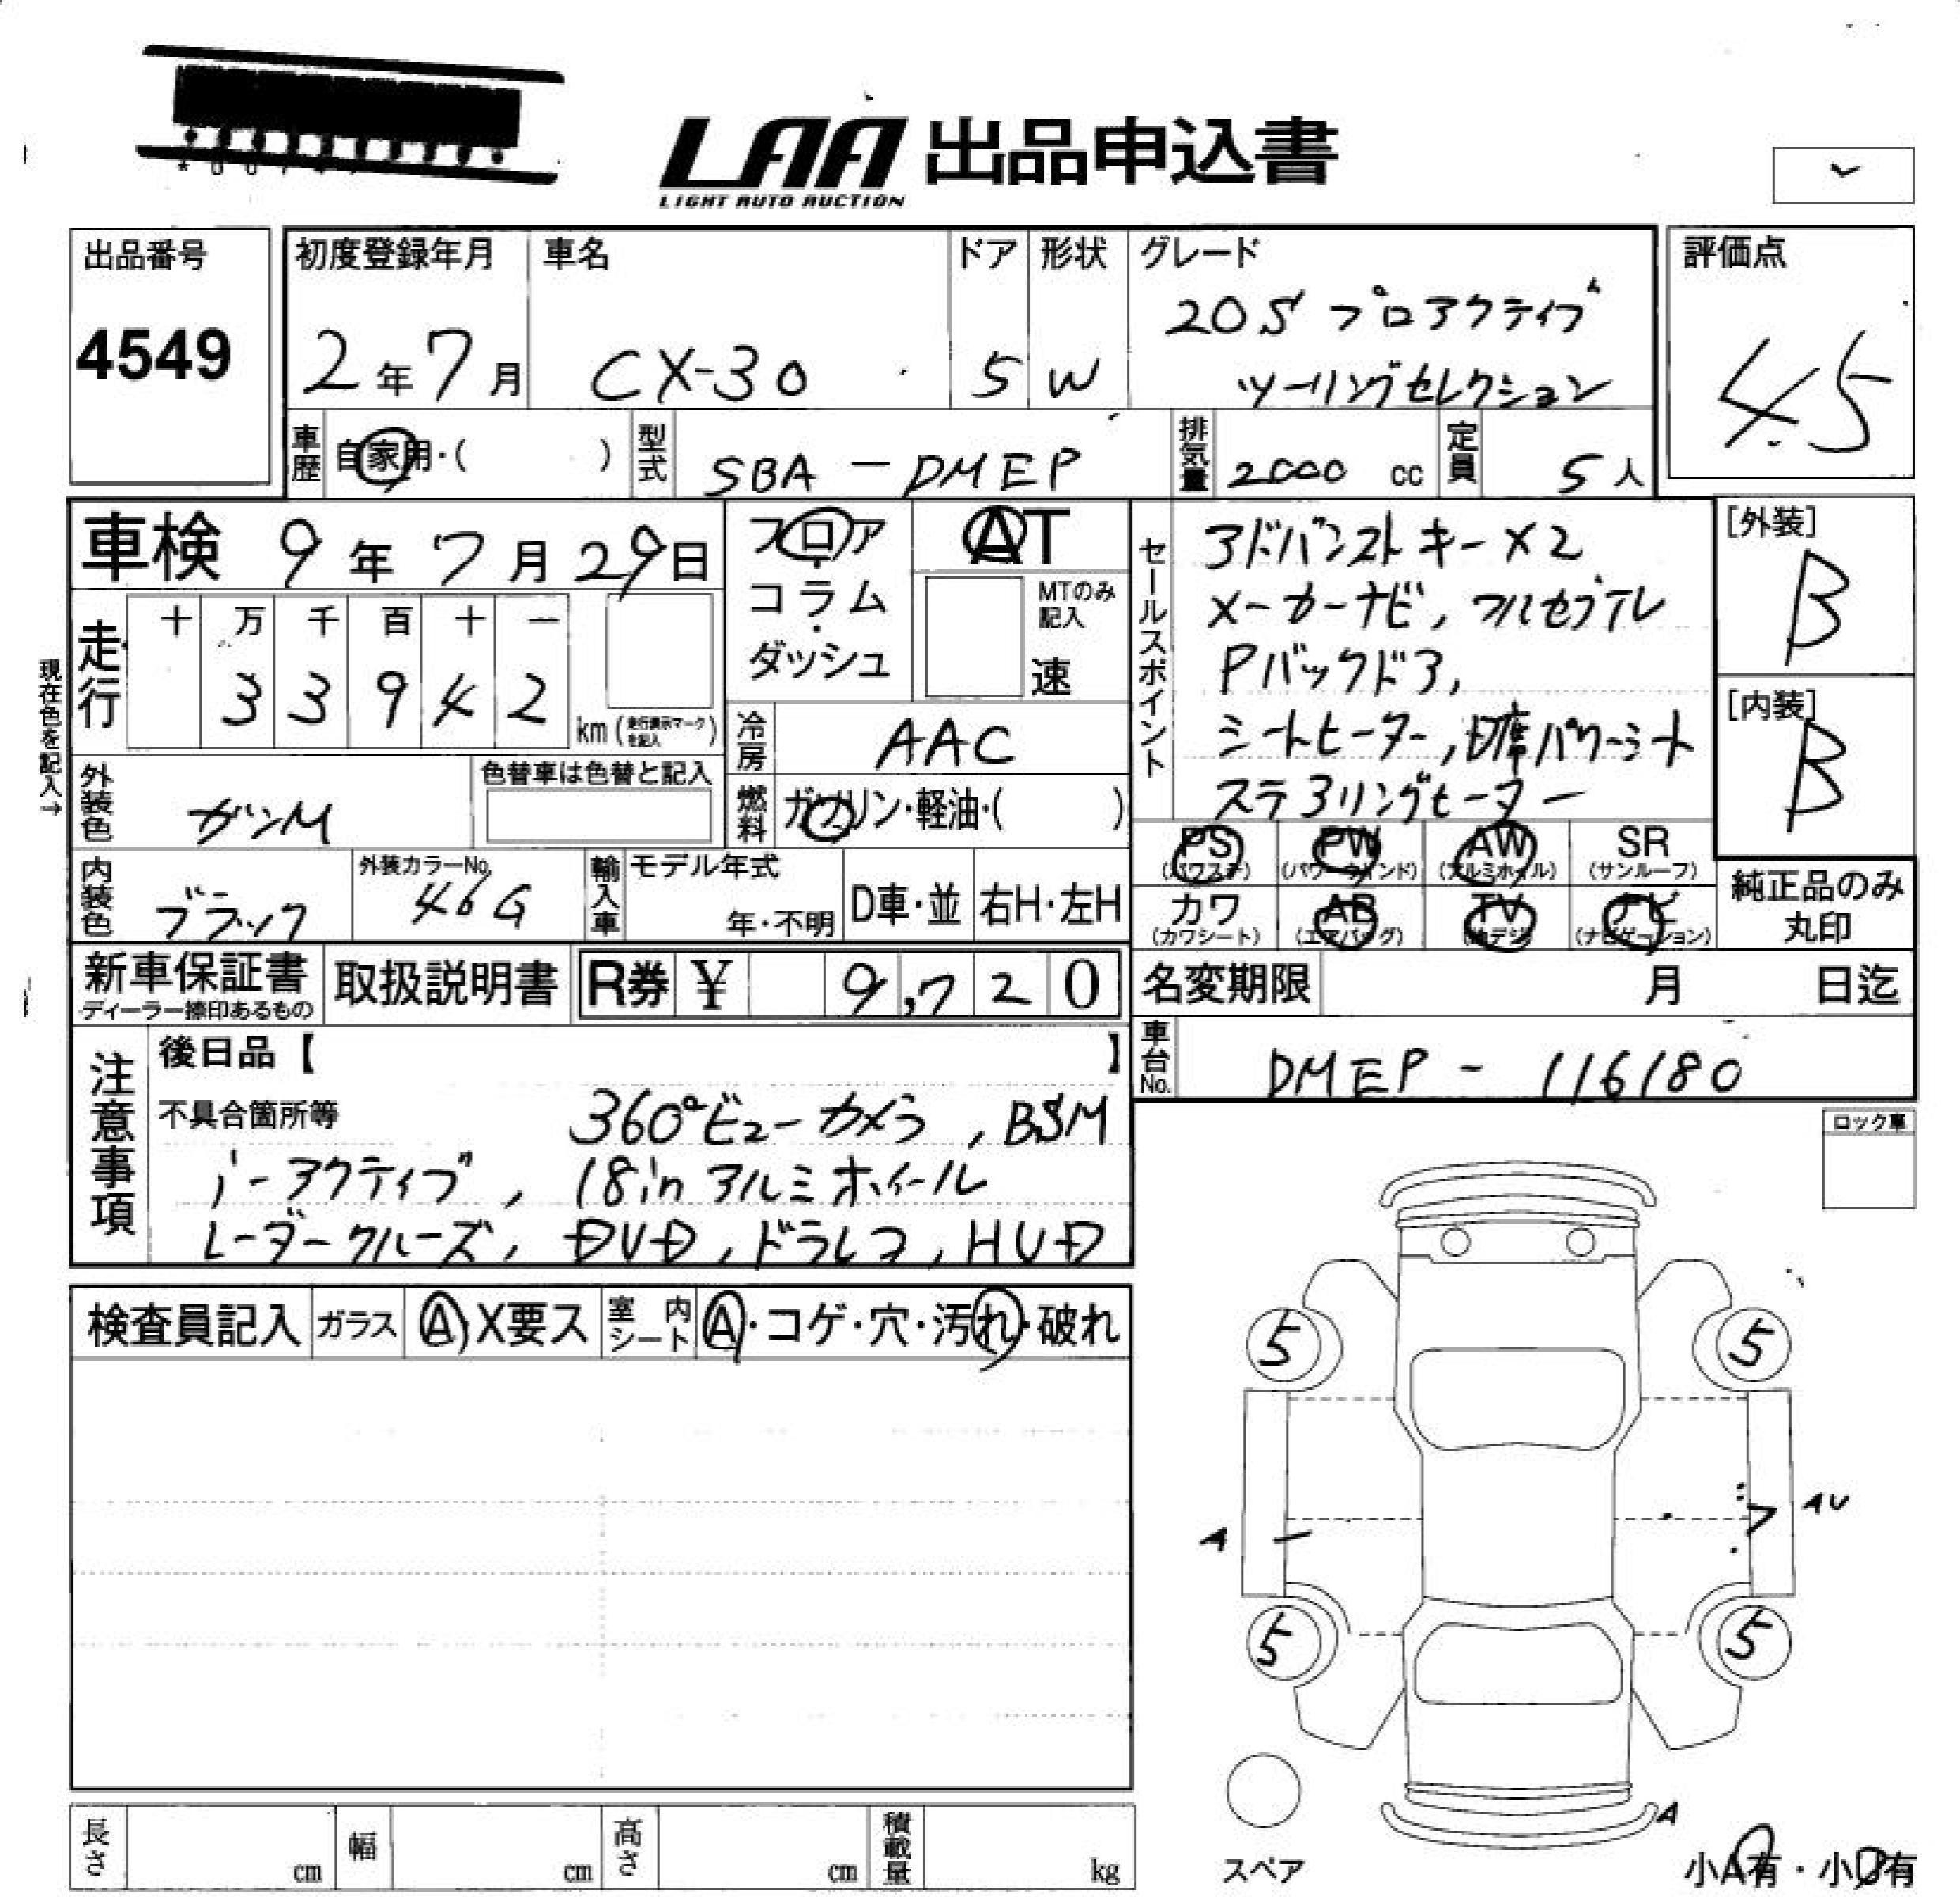 LAA 出品申込書
LIGHT AUTO AUCTION
出品番号
4549
初度登録年月
2年7月
車名
CX-30
ドア
5
形状
W
グレード
20S プロアクティブ
ツーリングセレクション
評価点
4.5
車歴
自家用・( )
型式
SBA - DMEP
排気量
2000 cc
定員
5人
車検 9年 7月 29日
フロア
・
コラム
・
ダッシュ
AT
MTのみ
記入
速
セールスポイント
アドバンストキー×2
メーカーナビ, フルセグテレ
Pバックドア,
シートヒーター, D席パワーシート
ステアリングヒーター
[外装]
B
[内装]
B
現在色を記入→
走行
十 万 千 百 十 一
3 3 9 4 2
km (走行表示マークを記入)
冷房
AAC
外装色
ガンM
色替車は色替と記入
燃料
ガソリン・軽油・( )
PS
(パワステ)
PW
(パワーウインド)
AW
(アルミホイル)
SR
(サンルーフ)
カワ
(カワシート)
AB
(エアバッグ)
TV
(地デジ)
ナビ
(ナビゲーション)
純正品のみ
丸印
内装色
ブラック
外装カラーNo.
46G
輸入車
モデル年式
年・不明
D車・並
右H・左H
新車保証書
ディーラー捺印あるもの
取扱説明書
R券 ¥ 9,720
名変期限 月 日迄
車台No.
DMEP - 116180
注意事項
後日品【 】
不具合箇所等
360°ビューカメラ, BSM
i-アクティブ, 18inアルミホイール
レーダークルーズ, DVD, ドラレコ, HUD
ロック車
検査員記入
ガラス
A・X要ス
室内シート
A・コゲ・穴・汚れ・破れ
5
5
A
AU
5
5
A
スペア
小A有・小U有
長さ cm
幅 cm
高さ cm
積載量 kg